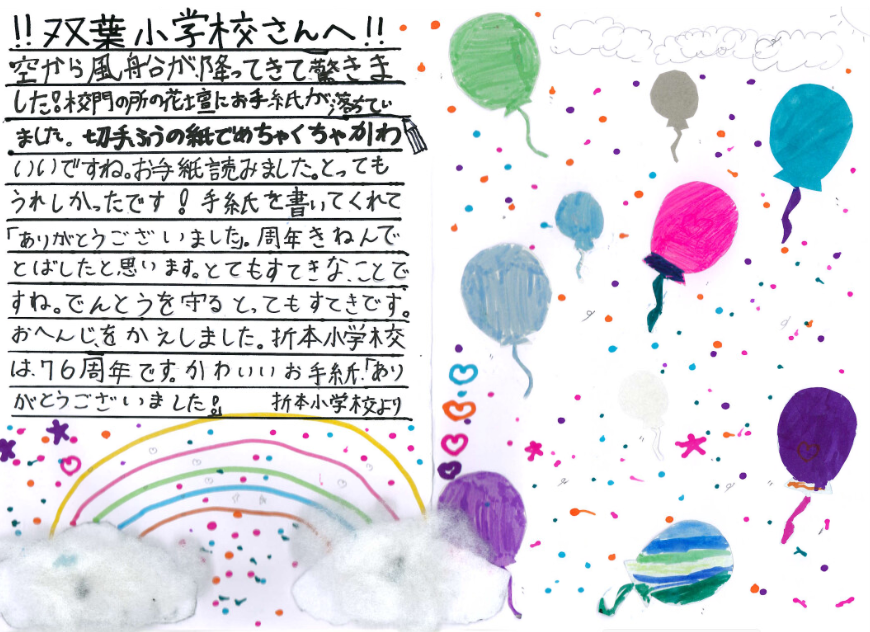 !!双葉小学校さんへ!!
空から風船が、降ってきて驚きま
した!校門の所の花壇にお手紙が落ちてい
ました。切手ふうの紙でめちゃくちゃかわ
いいですね。お手紙読みました。とっても
うれしかったです!手紙を書いてくれて
「ありがとうございました」。周年きねんで
とばしたと思います。とてもすてきな、ことで
すね。でんとうを守るとってもすてきです。
おへんじ、をかえしました。折本小学校
は、76周年です。かわいいお手紙、「あり
がとうございました!」 折本小学校より